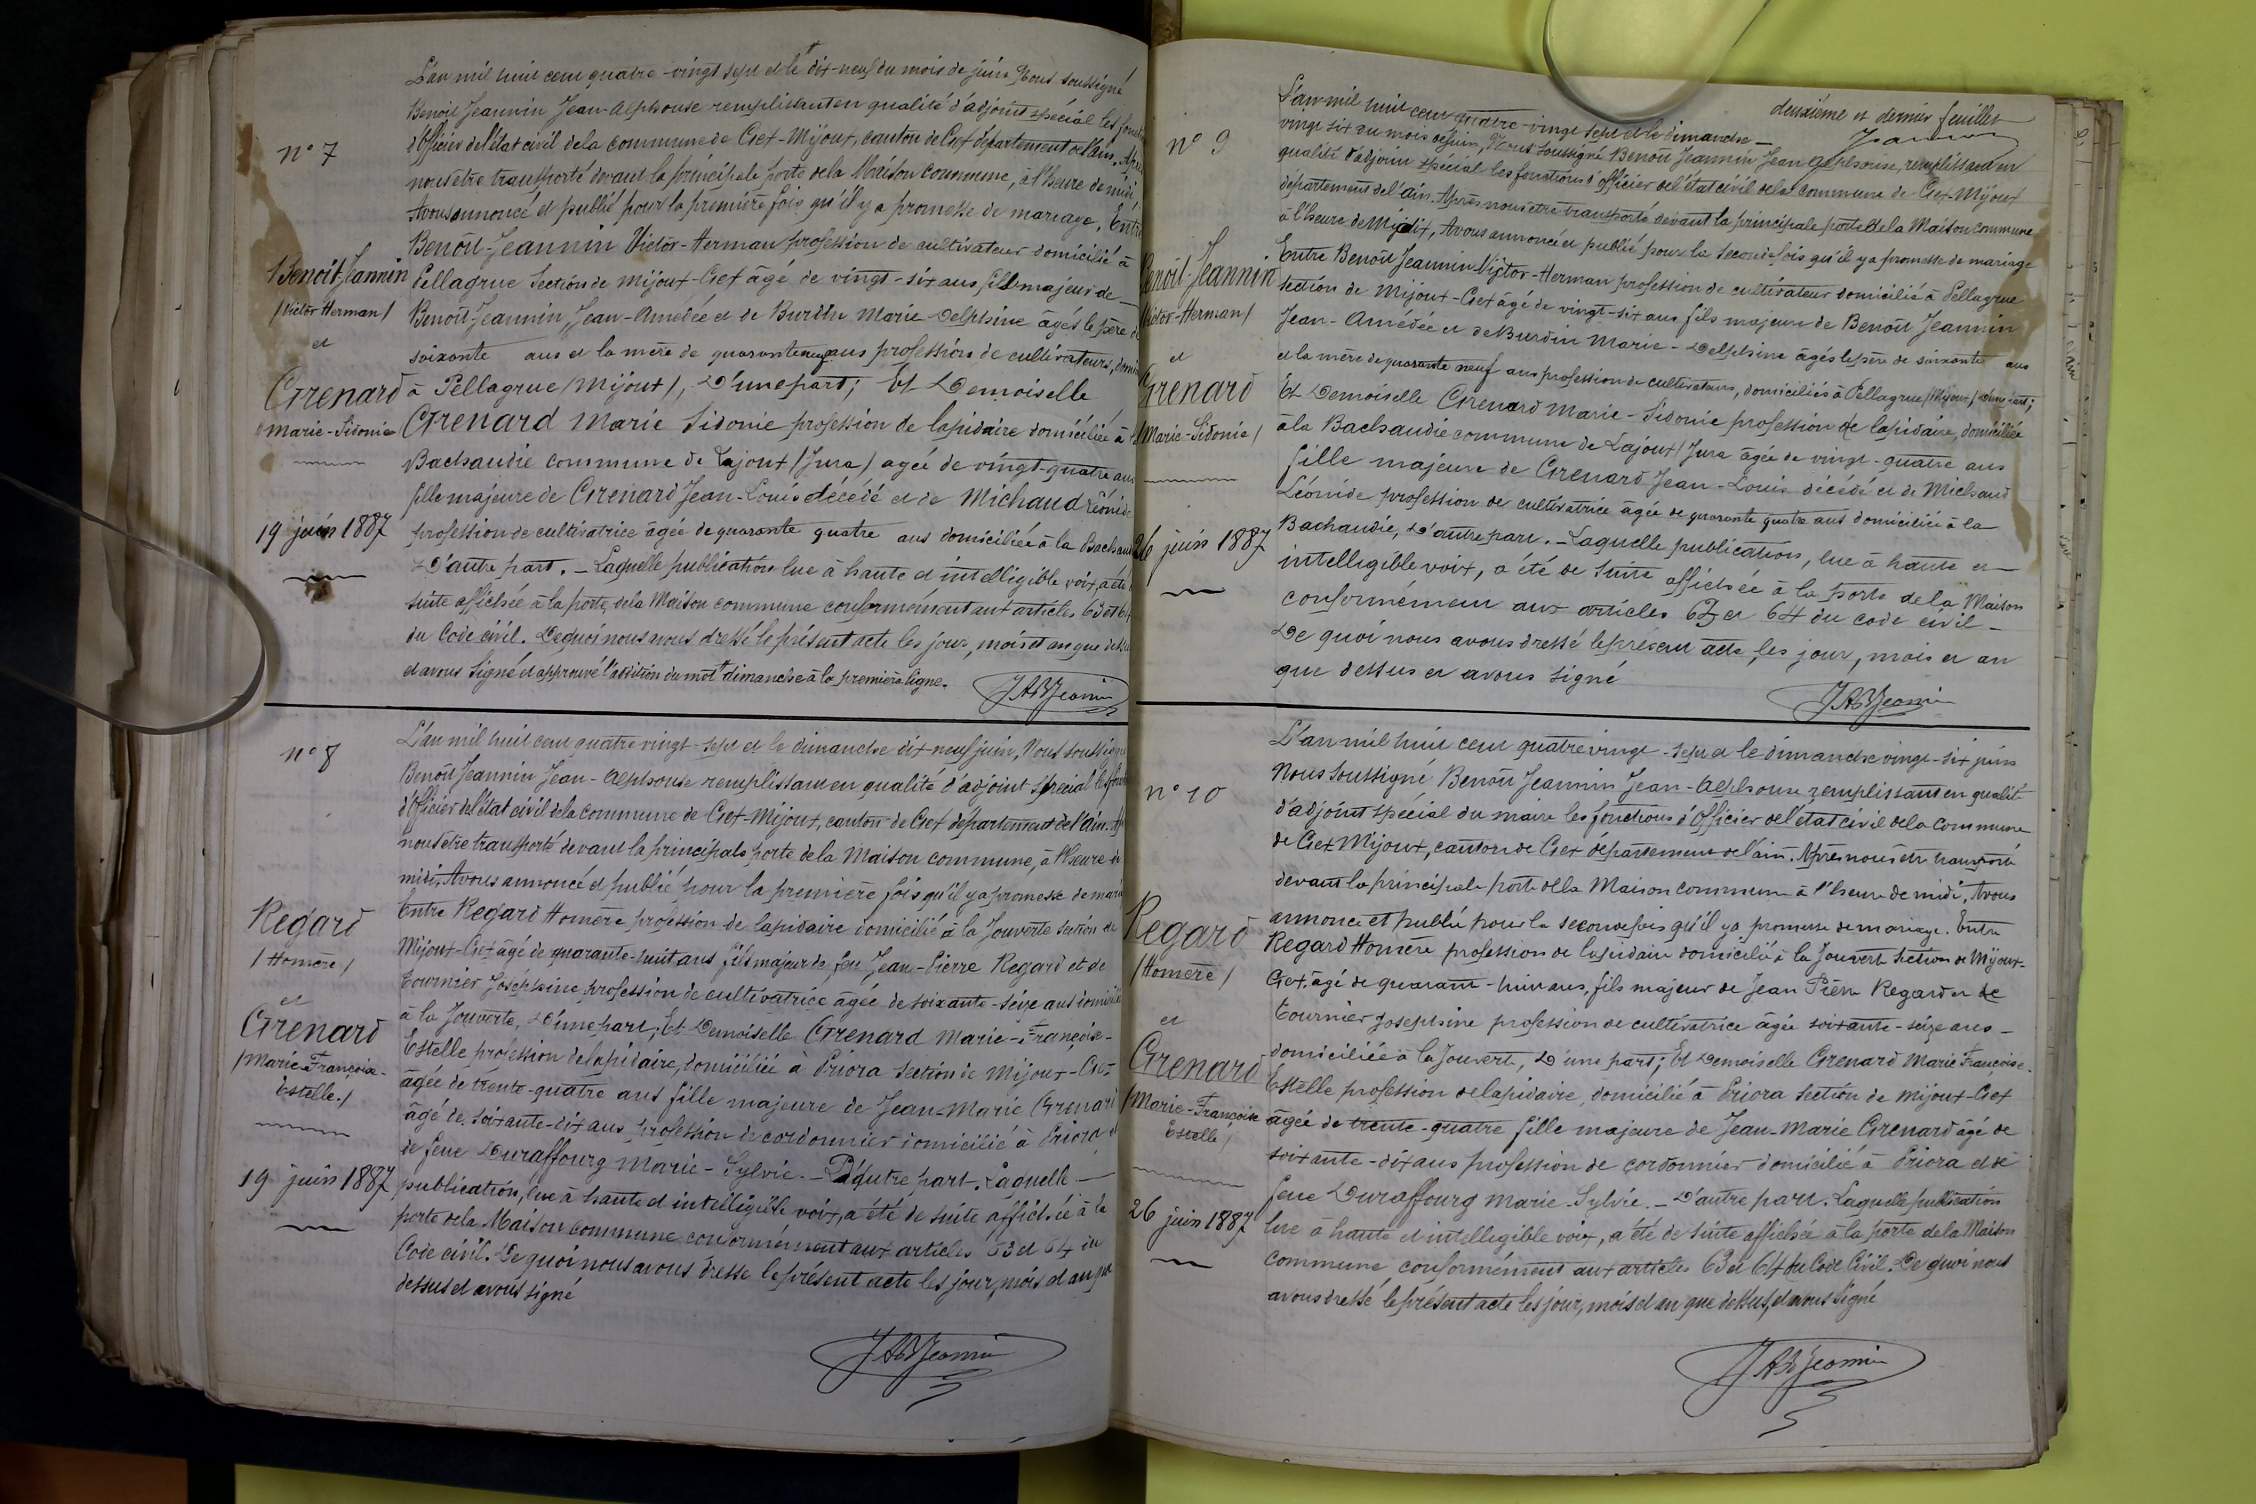 n° 7
Benoit-Jeannin
/Victor Herman/
et
Grenard
Marie-Sidonie
19 juin 1887
L'an mil huit cent quatre-vingt sept et le + dix-neuf du mois de juin Nous soussigné
Benoit Jeannin Jean-Alphonse remplissant en qualité d'adjoint spécial les
d'officier de l'état civil de la commune de Gex-Mijoux, canton de Gex département de l'ain. Après
nous être transporté devant la principale porte de la Maison commune, à l'heure de midi
Avons annoncé et publié pour la première fois qu'il y a promesse de mariage, Entre
Benoit-Jeannin Victor-Herman profession de cultivateur domicilié à
Pellagrue Section de Mijoux-Gex âgé de vingt-six ans fils majeur de
Benoit Jeannin Jean-Amédée et de Burdin Marie Delphine âgés le père de
soixante ans et la mère de quarante neuf ans profession de cultivateurs,
à Pellagrue /Mijoux/, D'une part; Et Demoiselle
Grenard Marie Sidonie profession de lapidaire domiciliée à la
Bachaudie commune de Lajoux /Jura/ agée de vingt-quatre ans
fille majeure de Grenard Jean-Louis décédé et de Michaud Léonide
profession de cultivatrice âgée de quarante quatre ans domiciliée à la
D'autre part. - Laquelle publication lue à haute et intelligible voix, a été
suite affichée à la porte de la Maison commune conformément aux articles 63 et 64
du Code civil. De quoi nous avons dressé le présent acte les jour, mois et an que dessus
et avons signé et approuvé l'addition du mot + dimanche à la première ligne.
JABJeannin
n° 8
Regard
/Homère/
et
Grenard
/Marie Françoise-
Estelle./
19 juin 1887
L'an mil huit cent quatre vingt-sept et le dimanche dix-neuf juin, Nous soussigné
Benoit Jeannin Jean-Alphonse remplissant en qualité d'adjoint spécial les
d'officier de l'état civil de la commune de Gex-Mijoux, canton de Gex département de l'ain.
nous être transporté devant la principale porte de la Maison commune, à l'heure de
midi, Avons annoncé et publié pour la première fois qu'il y a promesse de
Entre Regard Homère profession de lapidaire domicilié à la Jouverte section de
Mijoux-Gex âgé de quarante-huit ans fils majeur de feu Jean-Pierre Regard et de
Tournier Joséphine profession de cultivatrice âgée de soixante-seize ans
à la Jouverte, D'une part; Et Demoiselle Grenard Marie-Françoise-
Estelle profession de lapidaire, domiciliée à Priora section de Mijoux-Gex
âgée de trente-quatre ans fille majeure de Jean-Marie Grenard
âgé de soixante-dix ans, profession de cordonnier domicilié à Priora et
de feue Duraffourg Marie-Sylvie. - D'autre part. Laquelle
publication, lue à haute et intelligible voix, a été de suite affichée à la
porte de la Maison commune conformément aux articles 63 et 64 du
Code civil. De quoi nous avons dressé le présent acte les jour, mois et an que
dessus et avons signé
JABJeannin
deuxième et dernier feuillet
n° 9
Benoit-Jeannin
/Victor-Herman/
et
Grenard
/Marie-Sidonie/
26 juin 1887
L'an mil huit cent quatre-vingt sept et le dimanche
vingt six du mois de juin, Nous soussigné Benoit Jeannin Jean Alphonse, remplissant en
qualité d'adjoint spécial les fonctions d'officier de l'état civil de la commune de Gex-Mijoux
département de l'ain. Après nous être transporté devant la principale porte de la Maison commune
à l'heure de Midi, Avons annoncé et publié pour la seconde fois qu'il y a promesse de mariage
Entre Benoit Jeannin Victor-Herman profession de cultivateur domicilié à Pellagrue
section de Mijoux-Gex âgé de vingt-six ans fils majeur de Benoit Jeannin
Jean-Amédée et de Burdin Marie-Delphine âgés le père de soixante ans
et la mère de quarante neuf ans profession de cultivateurs, domiciliés à Pellagrue /Mijoux/ D'une part;
Et Demoiselle Grenard Marie-Sidonie profession de lapidaire, domiciliée
à la Bachaudie commune de Lajoux /Jura âgée de vingt-quatre ans
fille majeure de Grenard Jean-Louis décédé et de Michaud
Léonide profession de cultivatrice âgée de quarante quatre ans domiciliée à la
Bachaudie, D'autre part. - Laquelle publication, lue à haute et
intelligible voix, a été de suite affichée à la porte de la Maison
conformément aux articles 63 et 64 du code civil
De quoi nous avons dressé le présent acte, les jour, mois et an
que dessus et avons signé
JABJeannin
n° 10
Regard
/Homère/
et
Grenard
/Marie-Françoise
Estelle/
26 juin 1887
L'an mil huit cent quatre vingt-sept et le dimanche vingt-six juin
Nous soussigné Benoit Jeannin Jean-Alphonse remplissant en qualité
d'adjoint spécial du maire les fonctions d'officier de l'état civil de la commune
de Gex Mijoux, canton de Gex département de l'ain. Après nous être transporté
devant la principale porte de la Maison commune à l'heure de midi, Avons
annoncé et publié pour la seconde fois qu'il y a promesse de mariage. Entre
Regard Homère profession de lapidaire domicilié à la Jouverte section de Mijoux-
Gex, âgé de quarante-huit ans, fils majeur de Jean Pierre Regard et de
Tournier Joséphine profession de cultivatrice âgée soixante-seize ans
domiciliée à la Jouvert, D'une part; Et Demoiselle Grenard Marie Françoise-
Estelle profession de lapidaire, domicilié à Priora section de Mijoux-Gex
âgée de trente-quatre fille majeure de Jean-Marie Grenard âgé de
soixante-dix ans profession de cordonnier domicilié à Priora et de
feue Duraffourg Marie-Sylvie. - D'autre part. Laquelle publication
lue à haute et intelligible voix, a été de suite affichée à la porte de la Maison
commune conformément aux articles 63 et 64 du Code Civil. De quoi nous
avons dressé le présent acte les jour, mois et an que dessus, et avons signé
JABJeannin